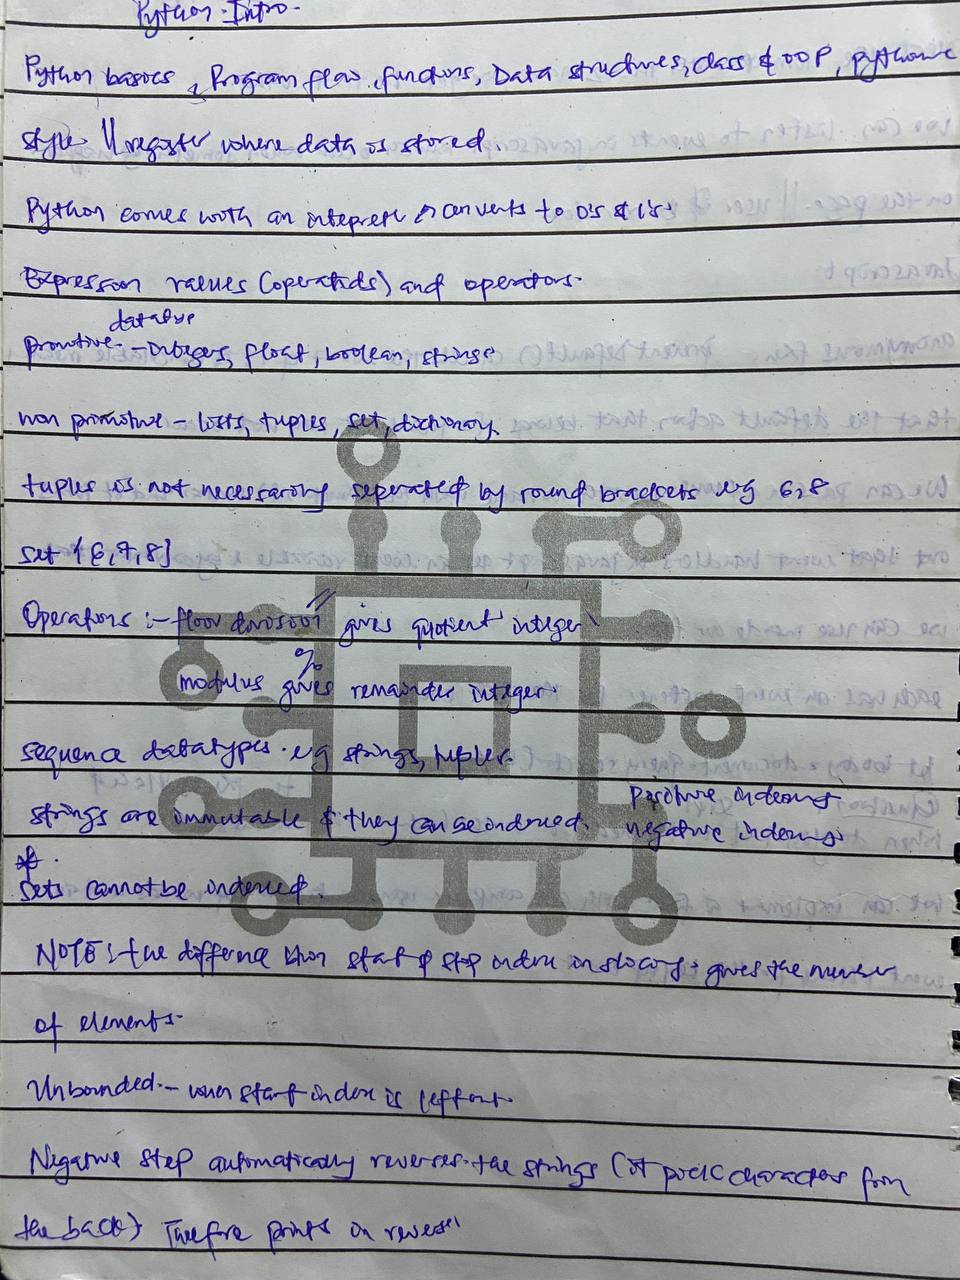 Python Intro.
Python basics, Program flow, functions, Data structures, class & OOP, pythonic
style || register where data is stored.
Python comes with an interpreter converts to 0's & 1's.
Expression values (operands) and operators.
datatype
primitive - integers, float, boolean, strings
non primitive - lists, tuples, set, dictionary.
tuples is not necessarily seperated by round brackets eg 6,8
set {6,7,8}
Operations :- floor division // gives quotient integer
%
modulus gives remainder integer.
sequence datatypes. eg strings, tuples.
positive indexing
strings are immutable & they can be indexed. negative indexing
Sets cannot be indexed.
NOTE: the difference btwn start & stop index in slicing gives the number
of elements.
Unbounded - when start index is left out.
Negative step automatically reverses the strings (it picks characters from
the back) Therefore prints in reverse